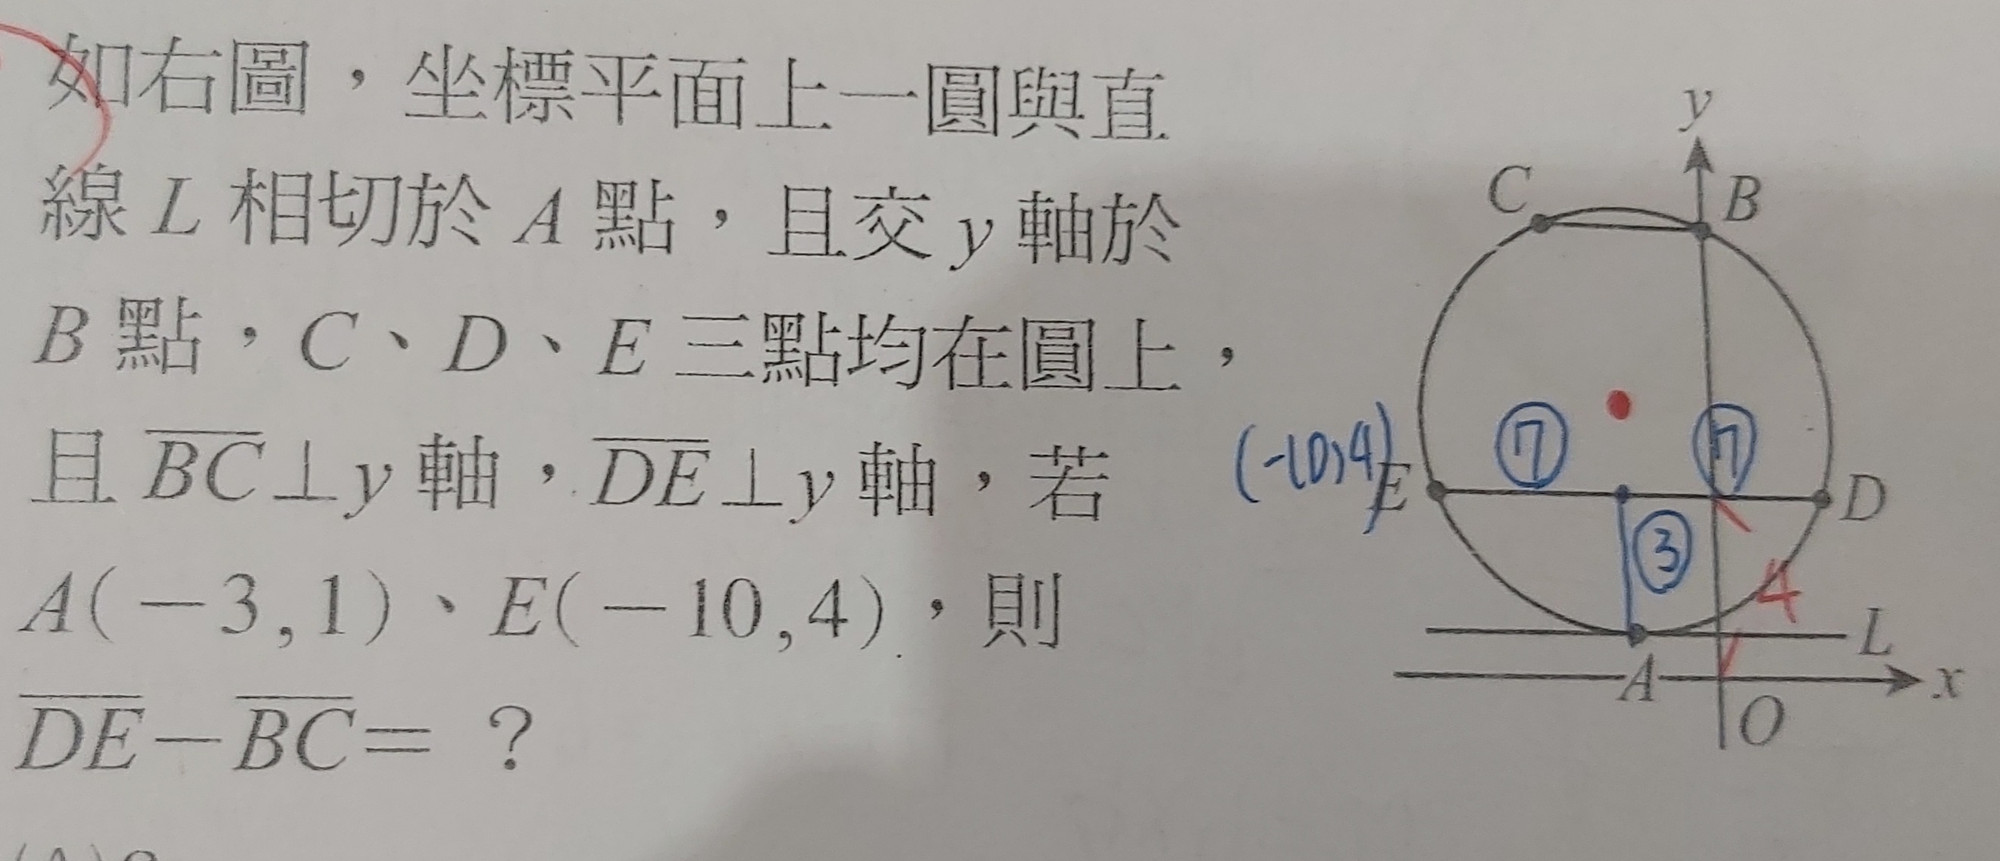 如右圖，坐標平面上一圓與直
線 L 相切於 A 點，且交 y 軸於
B 點，C、D、E 三點均在圓上，
且 BC⊥y 軸，DE⊥y 軸，若
A(－3,1)、E(－10,4)，則
DE－BC＝？
y
C
B
7
7
(-10,4)
E
D
3
4
L
A
x
O